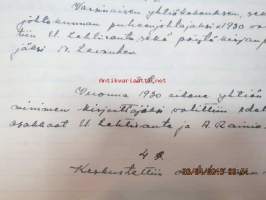 Varsinaisen yhtiökokouksen, se
johtokunnan puheenjohtajaksi 1930 va
tiin U. Lehtiranta sekä pöytäkirjan p
jäksi N. Levonken
3 §.
Vuonna 1930 aikana yhtiön
niminen kirjoittajaksi valittiin edel
asakkaat U. Lehtiranta ja A. Rainio
4 §
Keskusteltiin
Antikvariaatti.net